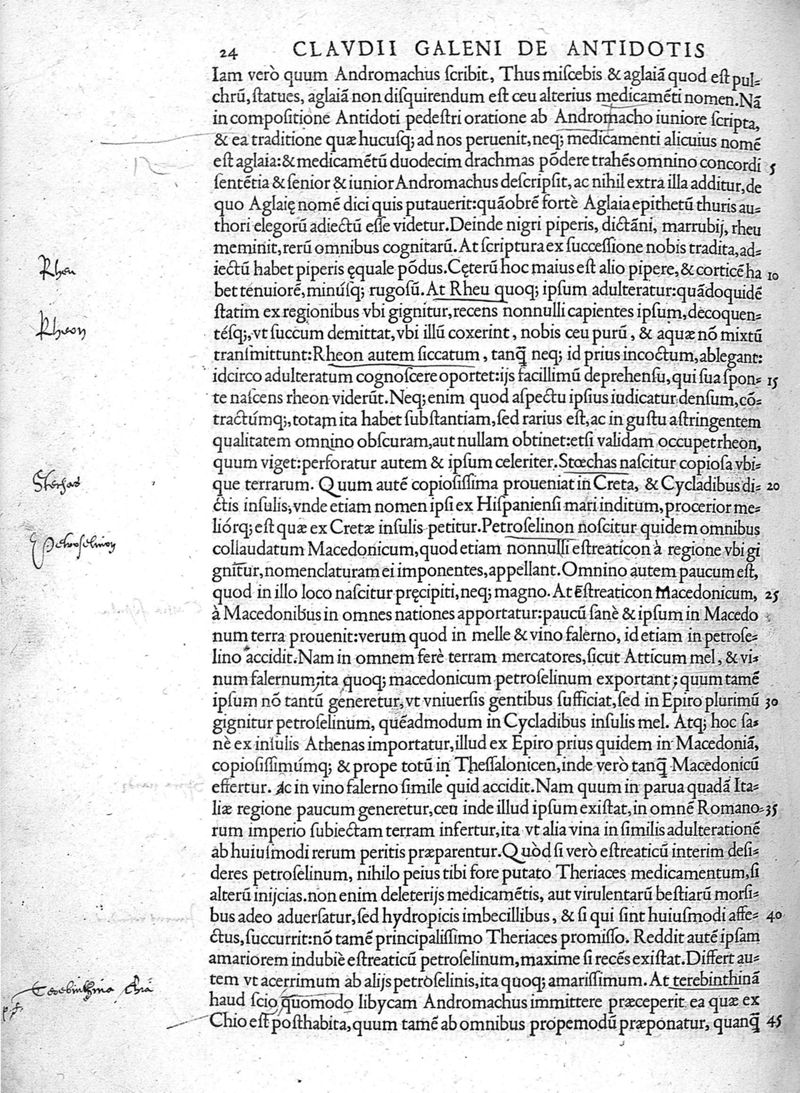 24 CLAVDII GALENI DE ANTIDOTIS
Iam verò quum Andromachus scribit, Thus miscebis & aglaiā quod est pul=
chrū, statues, aglaiā non disquirendum est ceu alterius medicamēti nomen. Nā
in compositione Antidoti pedestri oratione ab Andromacho iuniore scripta,
& ea traditione quæ hucusq; ad nos peruenit, neq; medicamenti alicuius nomē
est aglaia: & medicamētū duodecim drachmas pōdere trahēs omnino concordi 5
sentētia & senior & iunior Andromachus descripsit, ac nihil extra illa additur, de
quo Aglaię nomē dici quis putauerit: quāobrē fortè Aglaia epithetū thuris au=
thori elegorū adiectū esse videtur. Deinde nigri piperis, dictāni, marrubij, rheu
meminit, rerū omnibus cognitarū. At scriptura ex successione nobis tradita, ad=
Rheu
iectū habet piperis ęquale pōdus. Cęterū hoc maius est alio pipere, & corticē ha 10
bet tenuiorē, minúsq; rugosū. At Rheu quoq; ipsum adulteratur: quādoquidē
statim ex regionibus vbi gignitur, recens nonnulli capientes ipsum, decoquen=
Rheon
tésq;, vt succum demittat, vbi illū coxerint, nobis ceu purū, & aquæ nō mixtū
transmittunt: Rheon autem siccatum, tanq̄ neq; id prius incoctum, ablegant:
idcirco adulteratum cognoscere oportet: ijs facillimū deprehensu, qui sua spon= 15
te nascens rheon viderūt. Neq; enim quod aspectu ipsius iudicatur densum, cō=
tractúmq;, totam ita habet substantiam, sed rarius est, ac in gustu astringentem
qualitatem omnino obscuram, aut nullam obtinet: etsi validam occupet rheon,
quum viget: perforatur autem & ipsum celeriter. Stœchas nascitur copiosa vbi=
Stechas
que terrarum. Quum autē copiosissima proueniat in Creta, & Cycladibus di= 20
ctis insulis, vnde etiam nomen ipsi ex Hispaniensi mari inditum, procerior me=
liórq; est quæ ex Cretæ insulis petitur. Petroselinon noscitur quidem omnibus
Petroselinon
collaudatum Macedonicum, quod etiam nonnulli estreaticon à regione vbi gi
gnitur, nomenclaturam ei imponentes, appellant. Omnino autem paucum est,
quod in illo loco nascitur pręcipiti, neq; magno. At Estreaticon Macedonicum, 25
à Macedonibus in omnes nationes apportatur: paucū sanè & ipsum in Macedo
num terra prouenit: verum quod in melle & vino falerno, id etiam in petrose=
lino accidit. Nam in omnem ferè terram mercatores, sicut Atticum mel, & vi=
num falernum, ita quoq; macedonicum petroselinum exportant; quum tamē
ipsum nō tantū generetur, vt vniuersis gentibus sufficiat, sed in Epiro plurimū 30
gignitur petroselinum, quēadmodum in Cycladibus insulis mel. Atq; hoc sa=
nè ex insulis Athenas importatur, illud ex Epiro prius quidem in Macedoniā,
copiosissimúmq; & prope totū in Thessalonicen, inde verò tanq̄ Macedonicū
effertur. Ac in vino falerno simile quid accidit. Nam quum in parua quadā Ita=
liæ regione paucum generetur, ceu inde illud ipsum existat, in omnē Romano= 35
rum imperio subiectam terram infertur, ita vt alia vina in similis adulterationē
ab huiusmodi rerum peritis præparentur. Quòd si verò estreaticū interim desi=
deres petroselinum, nihilo peius tibi fore putato Theriaces medicamentum, si
alterū inijcias. non enim deleterijs medicamētis, aut virulentarū bestiarū morsi=
bus adeo aduersatur, sed hydropicis imbecillibus, & si qui sint huiusmodi affe= 40
ctus, succurrit: nō tamē principalissimo Theriaces promisso. Reddit autē ipsam
amariorem indubiè estreaticū petroselinum, maxime si recēs existat. Differt au=
tem vt acerrimum ab alijs petroselinis, ita quoq; amarissimum. At terebinthinā
Terebinthina
haud scio quomodo libycam Andromachus immittere præceperit ea quæ ex
Chio est posthabita, quum tamē ab omnibus propemodū præponatur, quanq̄ 45